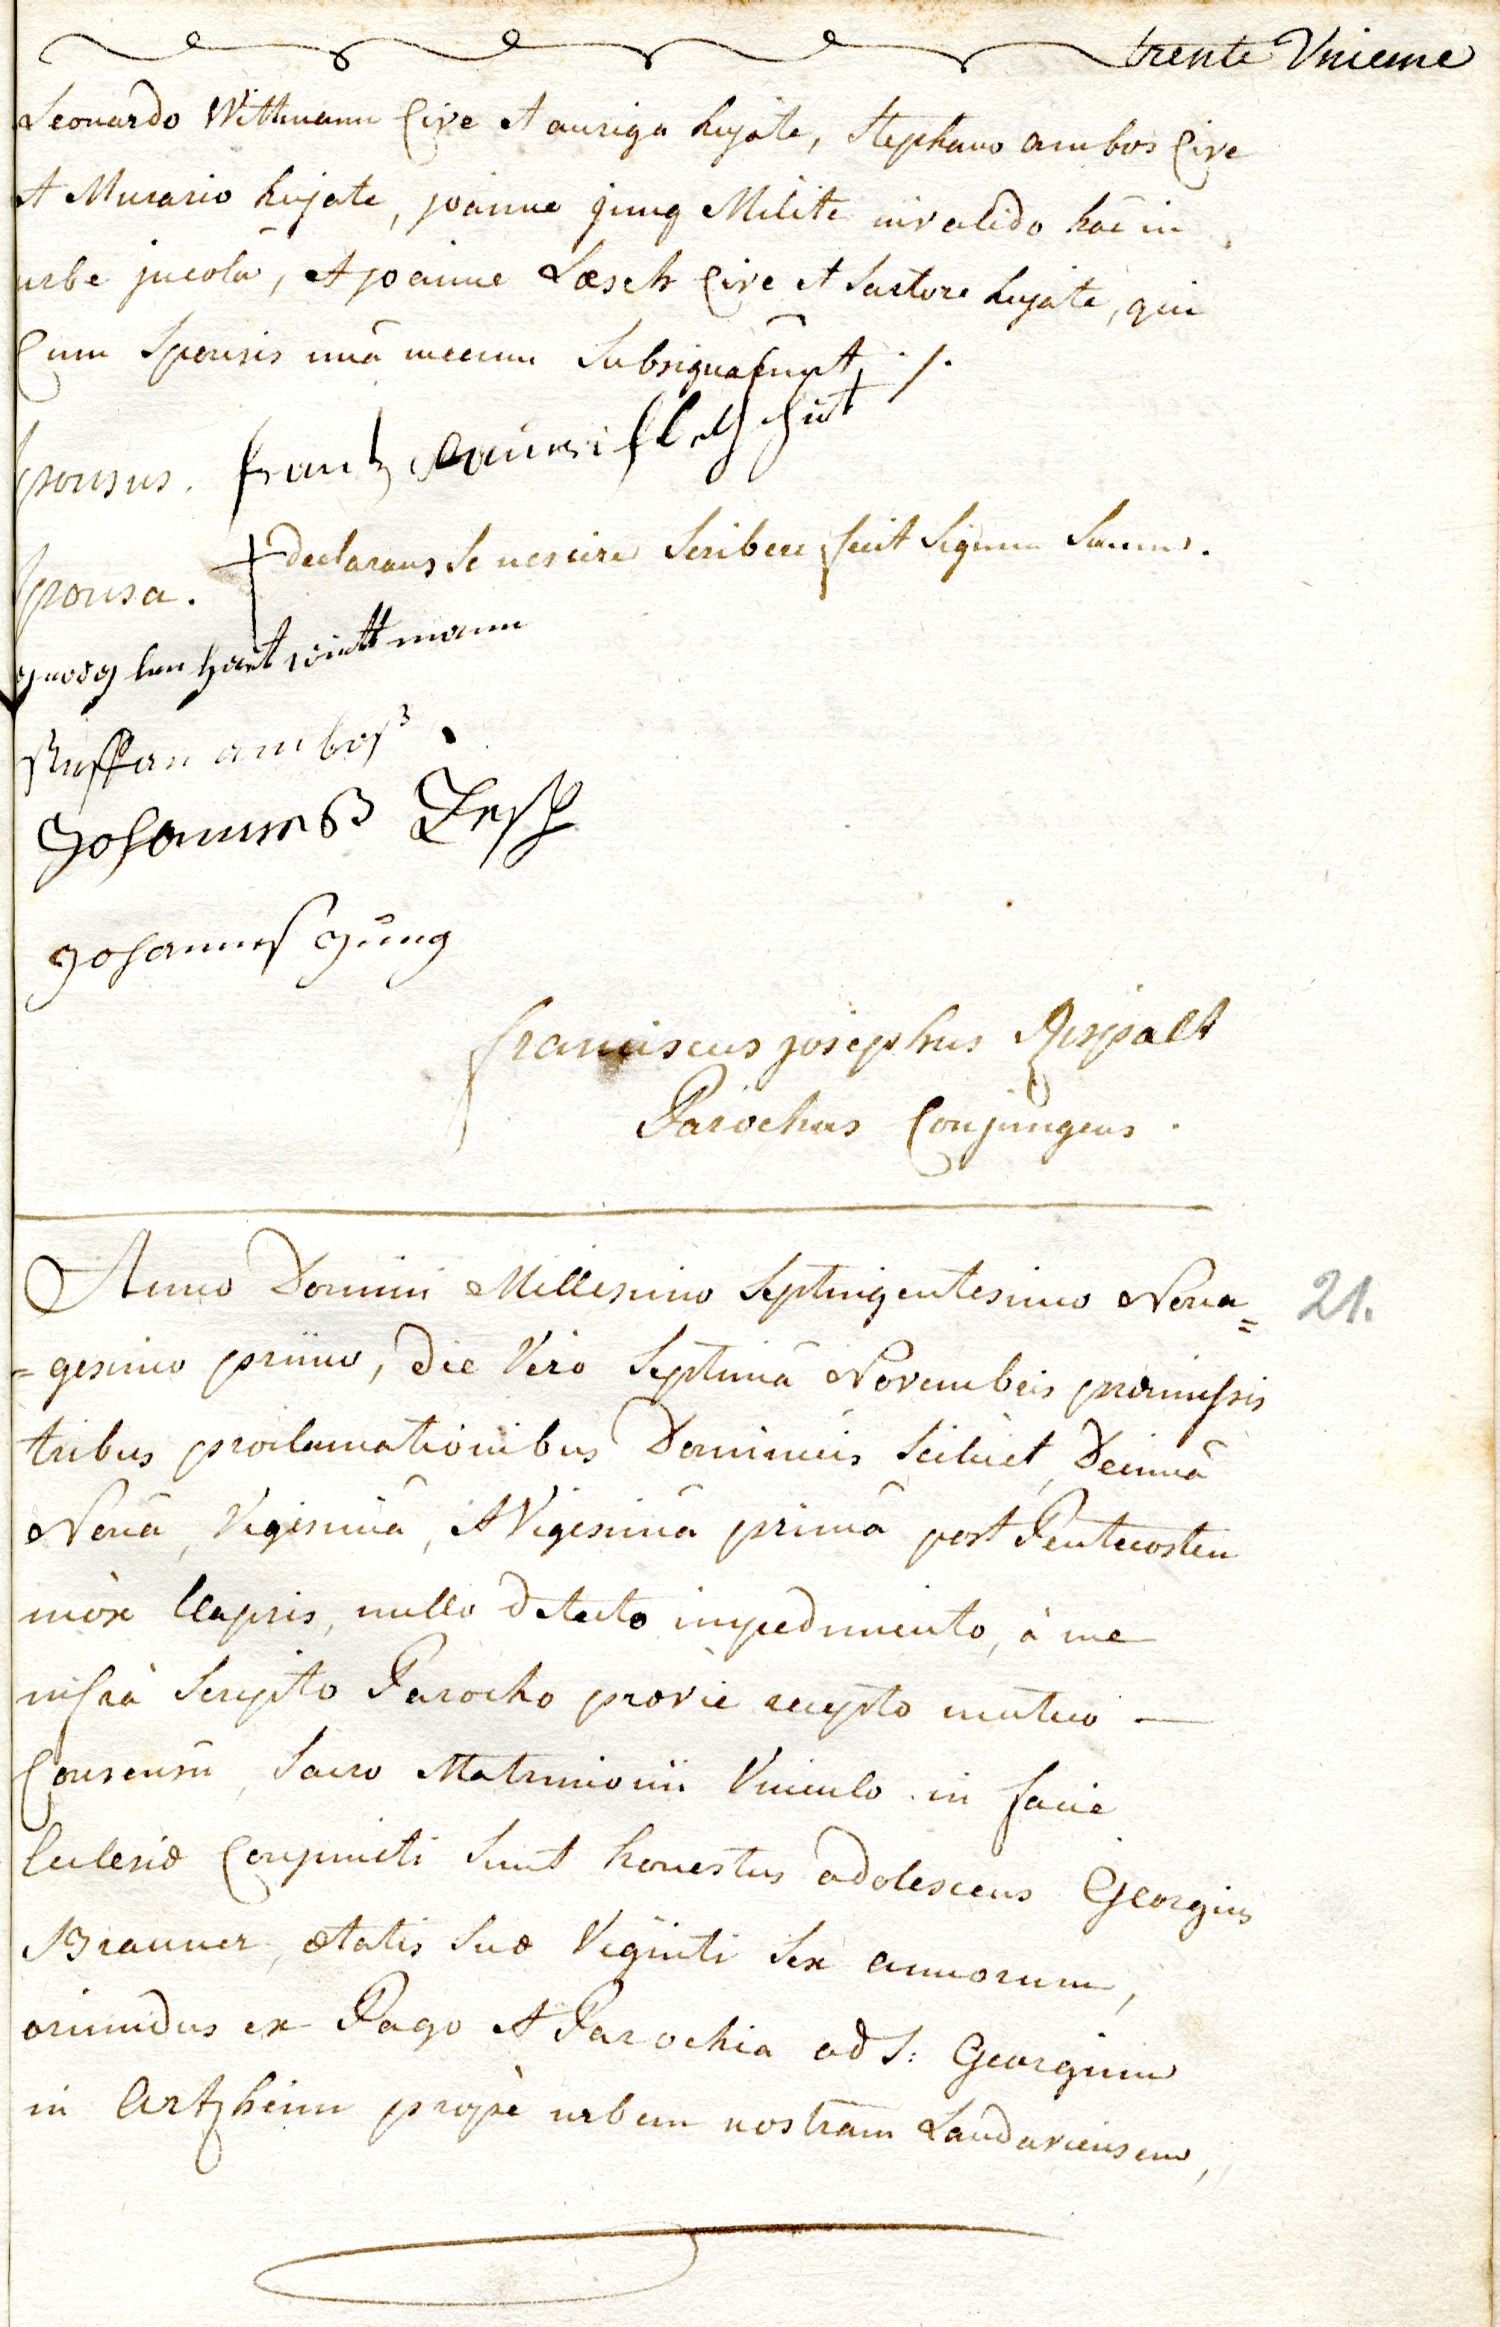 trente Unieme
Leonardo Wittmann Cive et auriga hujate, Stephano ambos Cive
et Murario hujate, joanne jung Milite invalido hac in
urbe jncolâ, et joanne Lœsch Cive et Sartore hujate, qui
Cum Sponsis unâ mecum Subsignarunt ./.
sponsus. frantz
sponsa. + declarans se nescire scribere fecit signum suum.
georg lenhart wittmann
steffan amboß
Johanneß Lesch
Johannes Jung
franciscus josephus Aspalt
Parochus Conjungens.
Anno Domini Millesimo Septingentesimo Nona= 21.
=gesimo primo, die Vero Septimâ Novembris præmissis
tribus proclamationibus Dominicis scilicet Decimâ
Nonâ, Vigesimâ, et Vigesimâ primâ post Pentecosten
mòx Elapsis, nullo detecto impedimento, à me
infrà Scripto Parocho proviè recepto mutuo —
Consensu, Sacro Matrimonii Vinculo in facie
Ecclesiæ Conjuncti Sunt honestus adolescens Georgius
Brauner, ætatis Suæ Viginti Sex annorum,
oriundus ex Pago et Parochia ad S: Georgium
in Artzheim propè urbem nostram Landaviensem,